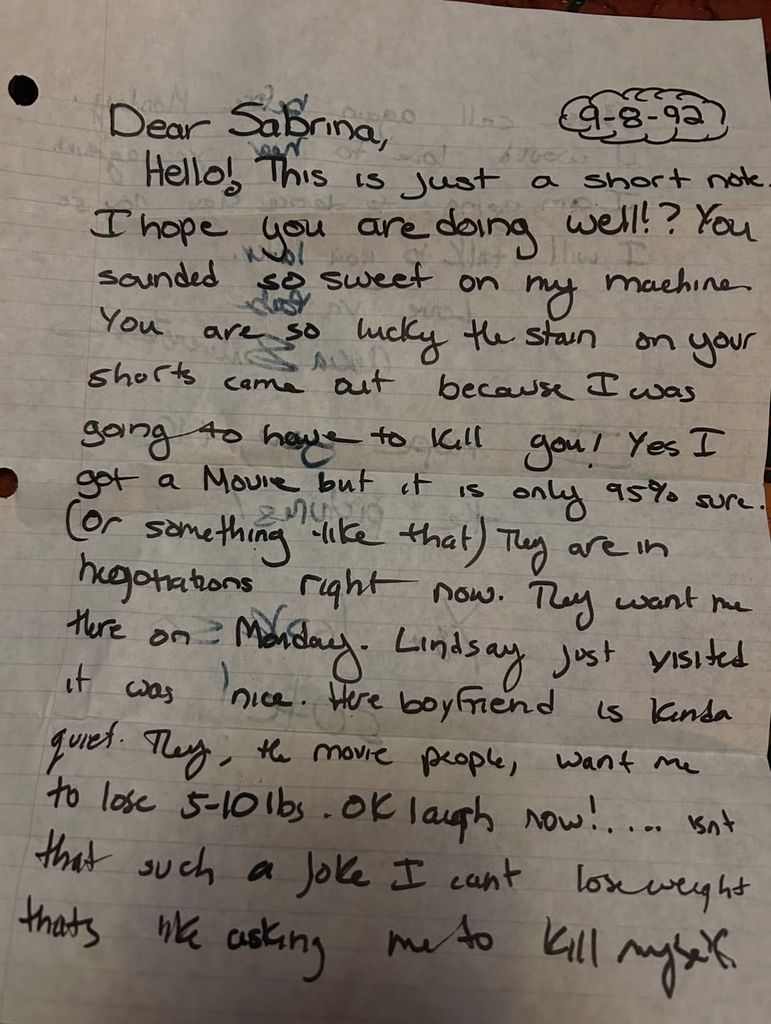 9-8-92
Dear Sabrina,
Hello! This is just a short note.
I hope you are doing well!? You
sounded so sweet on my machine.
You are so lucky the stain on your
shorts came out because I was
going to have to kill you! Yes I
got a Movie but it is only 95% sure.
(Or something like that) They are in
negotiations right now. They want me
there on Monday. Lindsay just visited
it was nice. Here boyfriend is kinda
quiet. They, the movie people, want me
to lose 5-10 lbs. OK laugh now!.... isnt
that such a joke I cant lose weight
thats like asking me to kill myself.